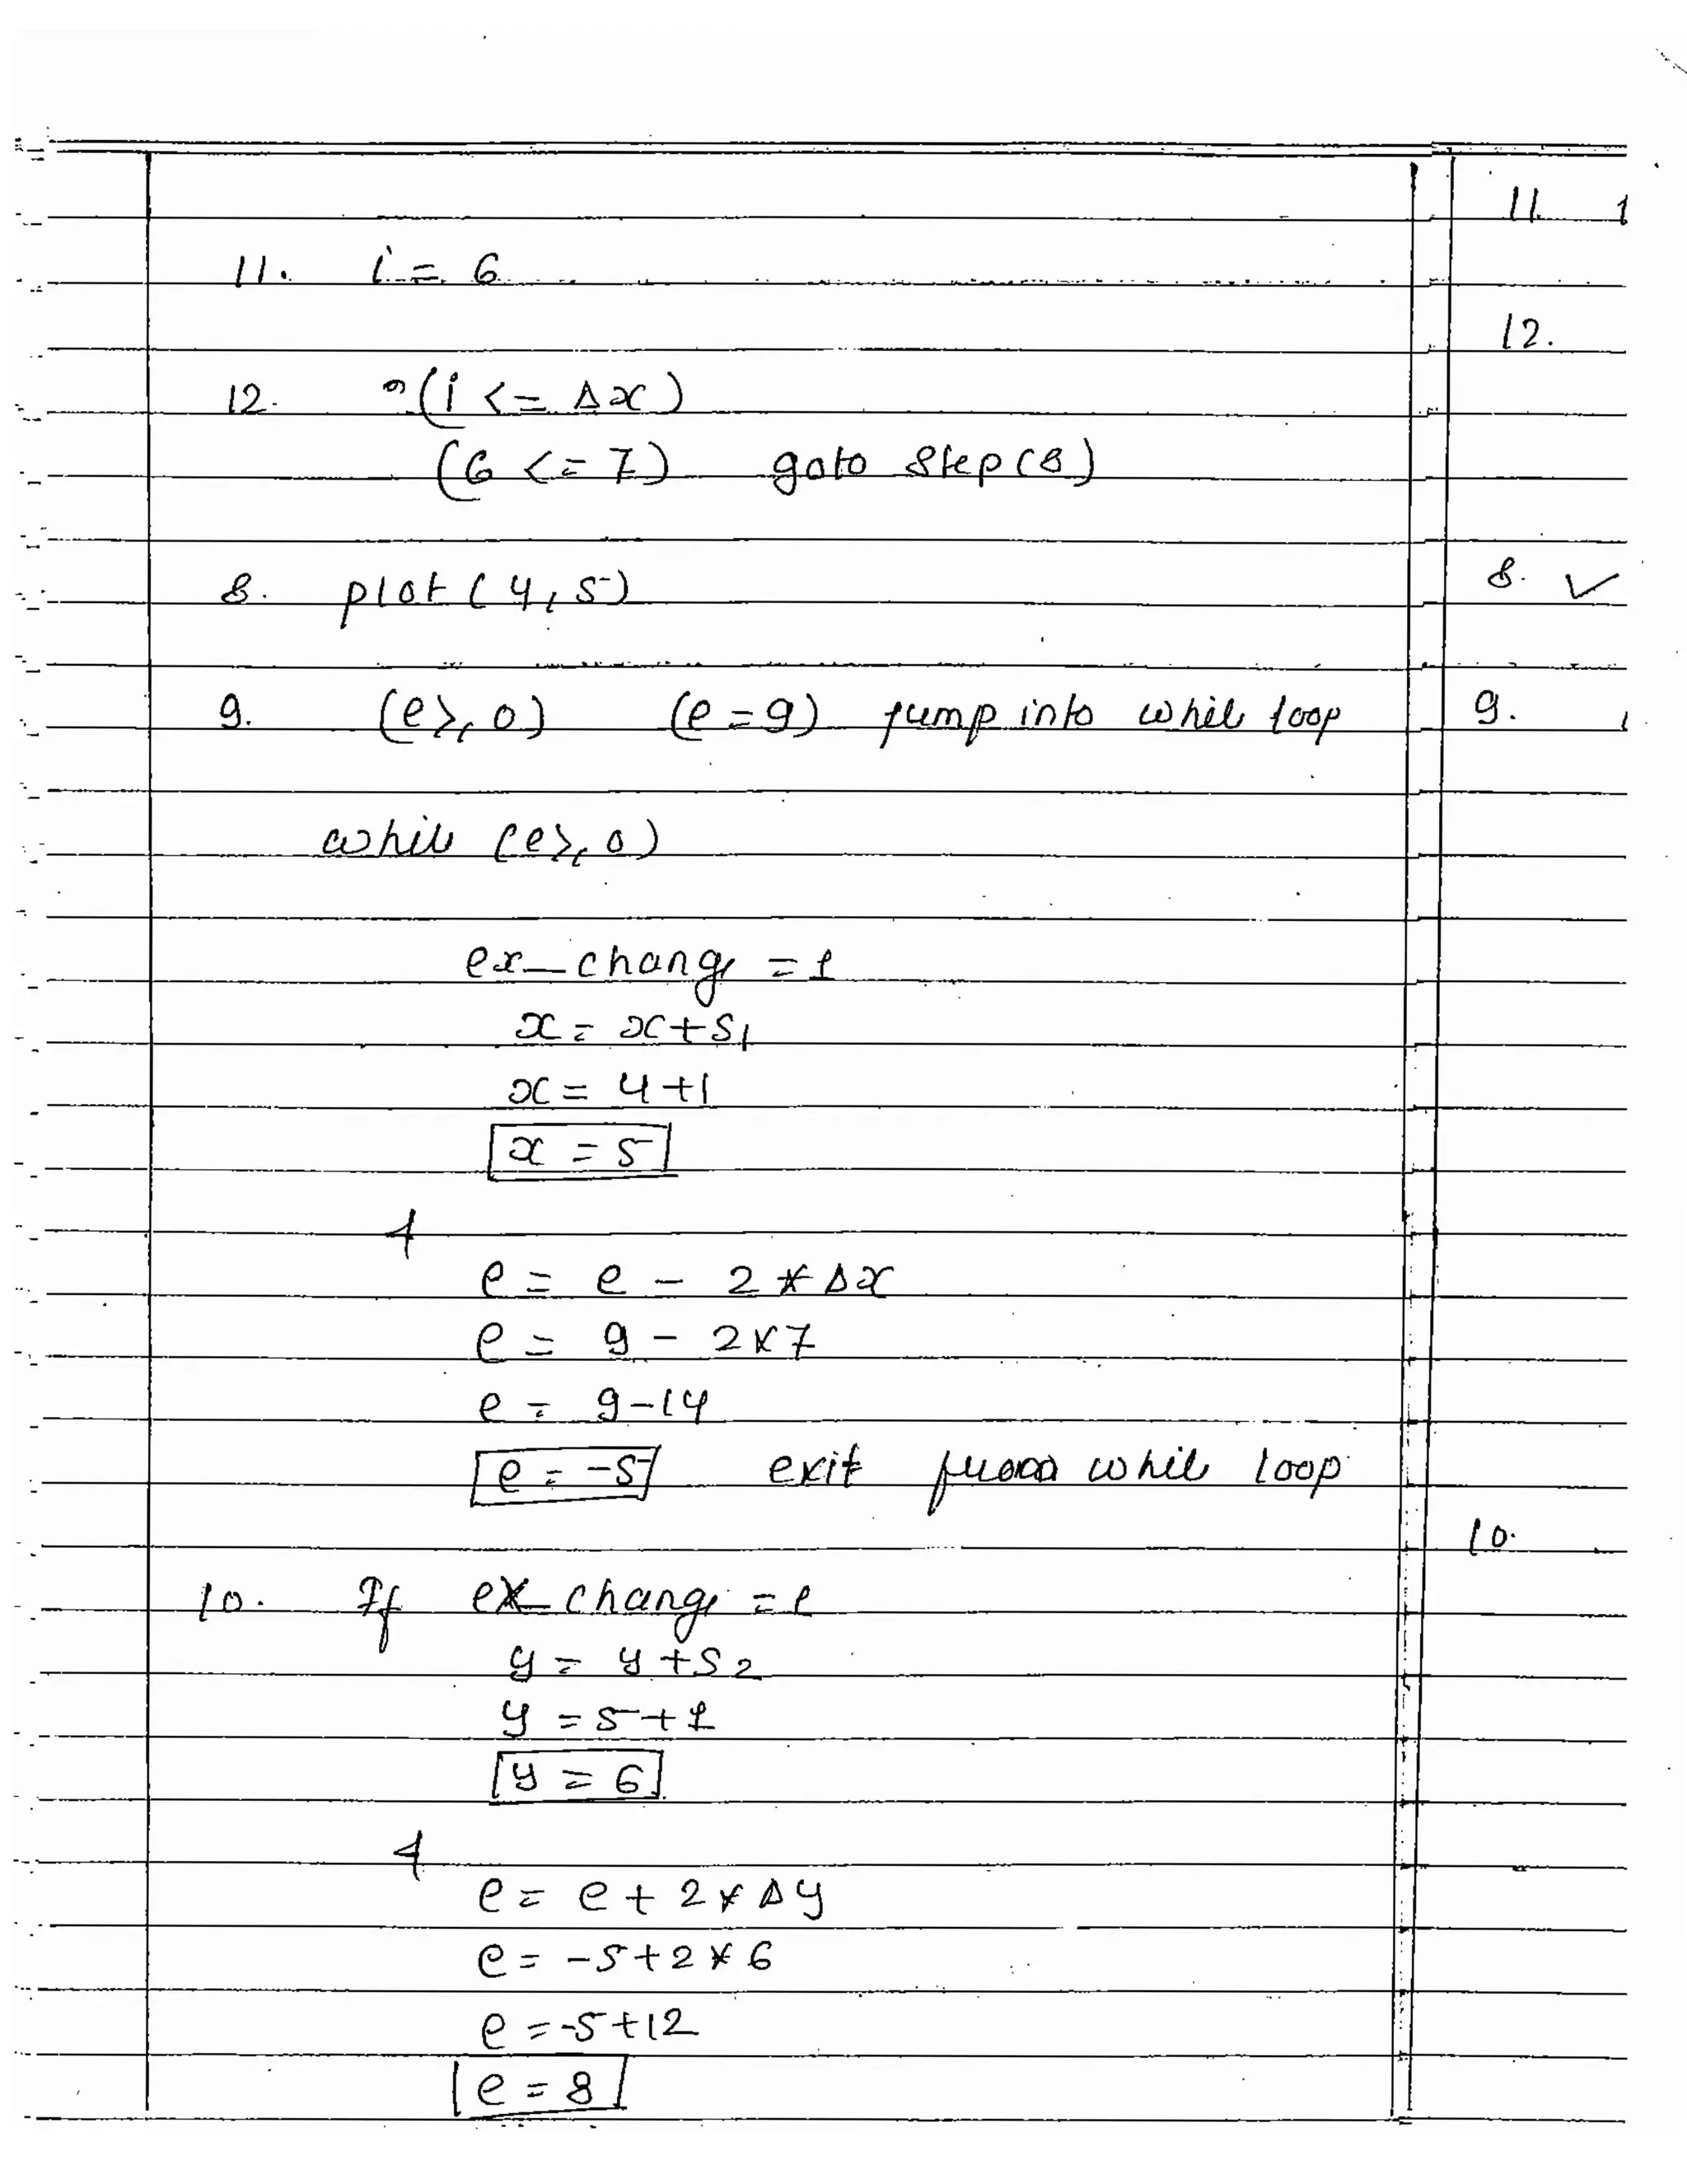 11. i = 6
12. (i <= Δx)
(6 <= 7) goto step(8)
8. plot (4, 5)
9. (e ≥ 0) (e = 9) jump into while loop
while (e ≥ 0)
ex_change = 1
x = x + S1
x = 4 + 1
x = 5
&
e = e - 2 * Δx
e = 9 - 2 * 7
e = 9 - 14
e = -5 exit from while loop
10. If ex_change = 1
y = y + S2
y = 5 + 1
y = 6
&
e = e + 2 * Δy
e = -5 + 2 * 6
e = -5 + 12
e = 8
11. 1
12.
8. ✓
9.
10.